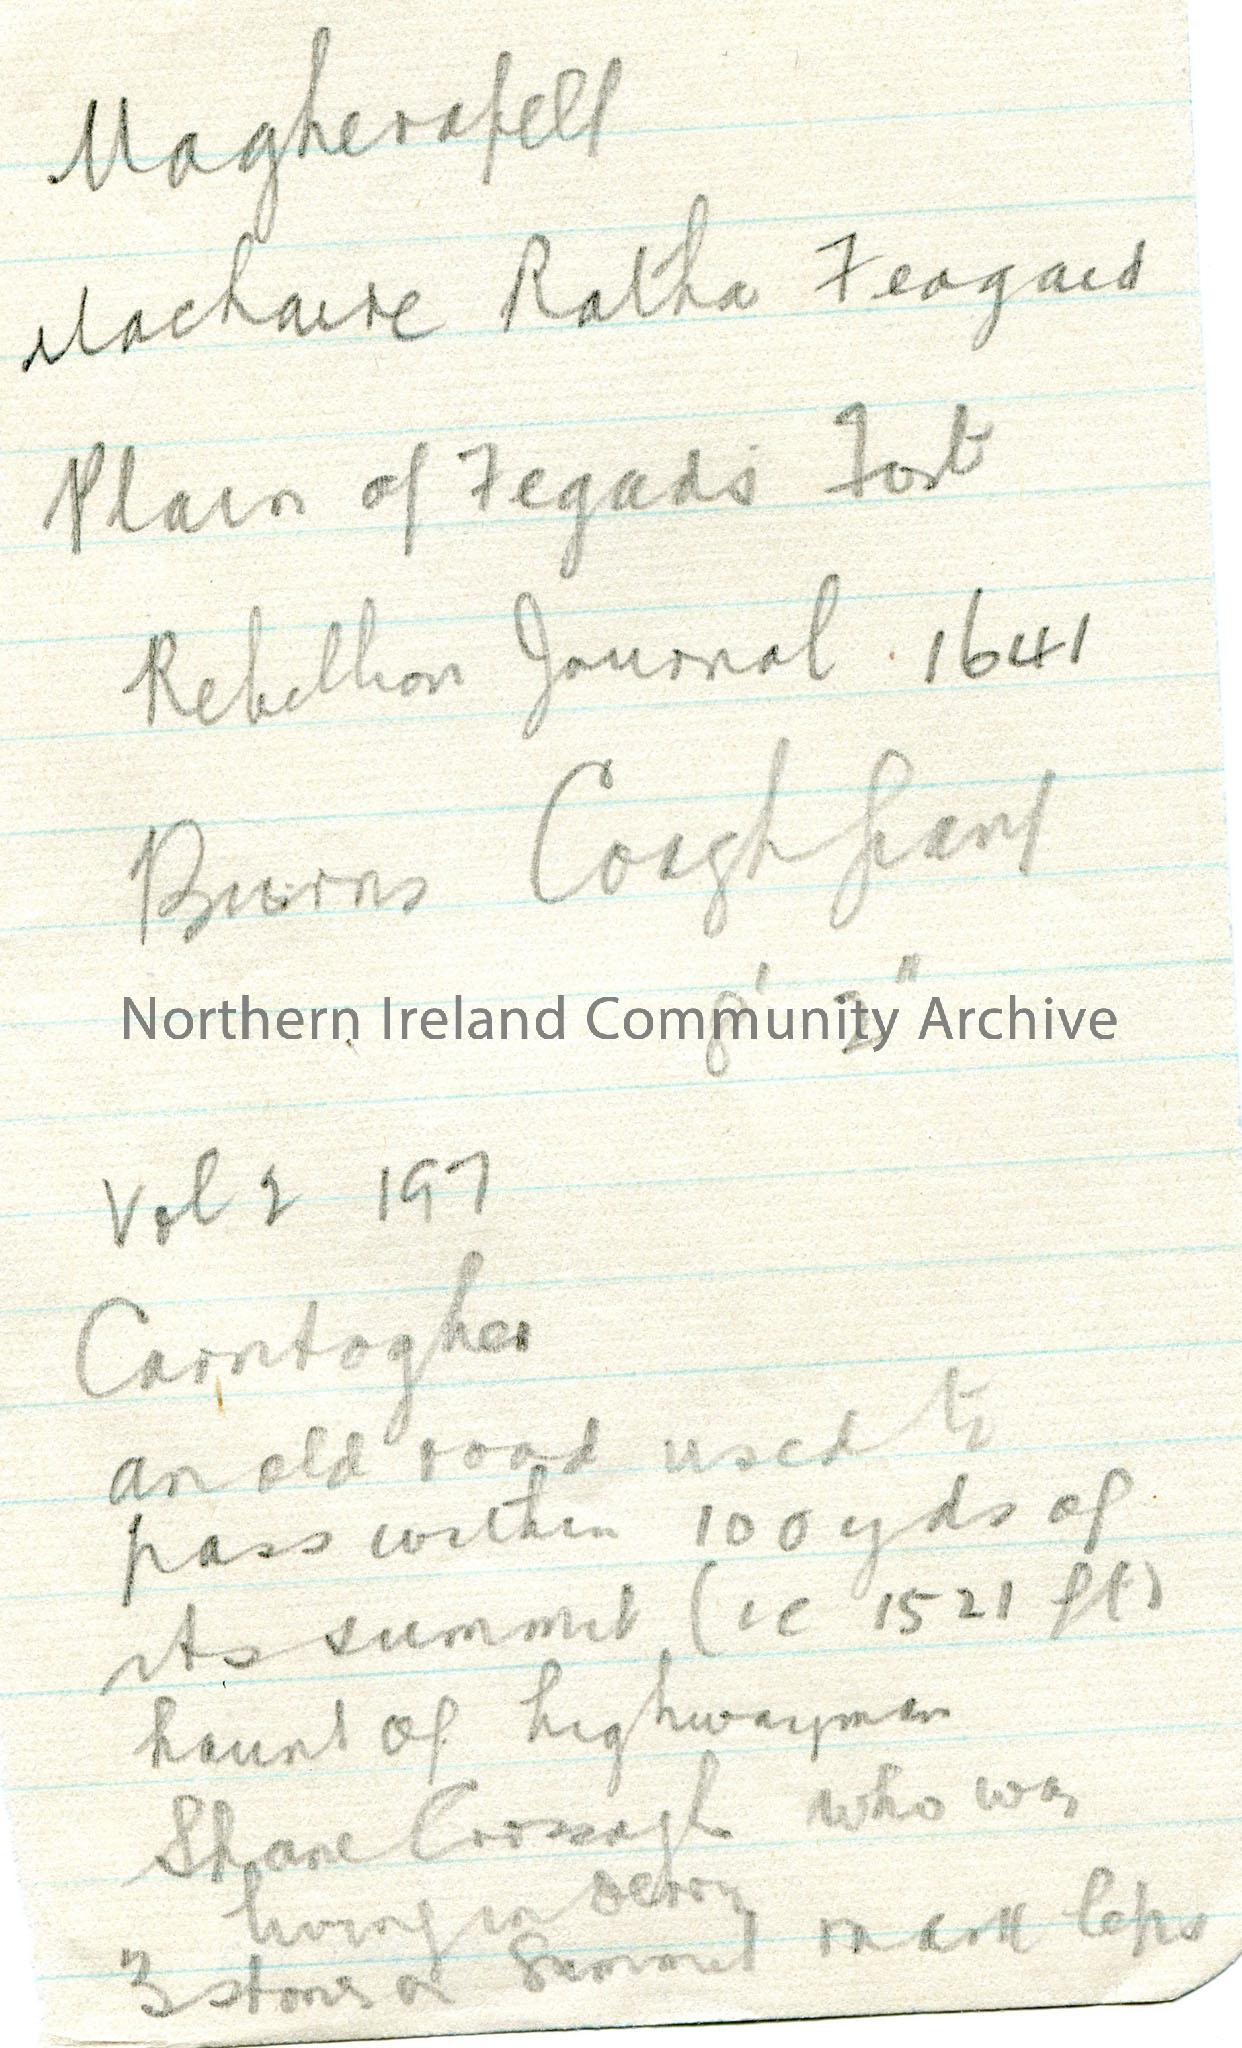 Magherafelt
Machaire Ratha Feagaid
Plain of Fegads Fort
Rebellion Journal . 1641
Burns Coagh Giant
8' 2"
Northern Ireland Community Archive
Vol 2 197
Carntogher
an old road used to
pass within 100 yds of
its summit (ie 1521 ft)
haunt of highwayman
Shane Crossagh who was
in Derry
3 stones on Summit mark leps